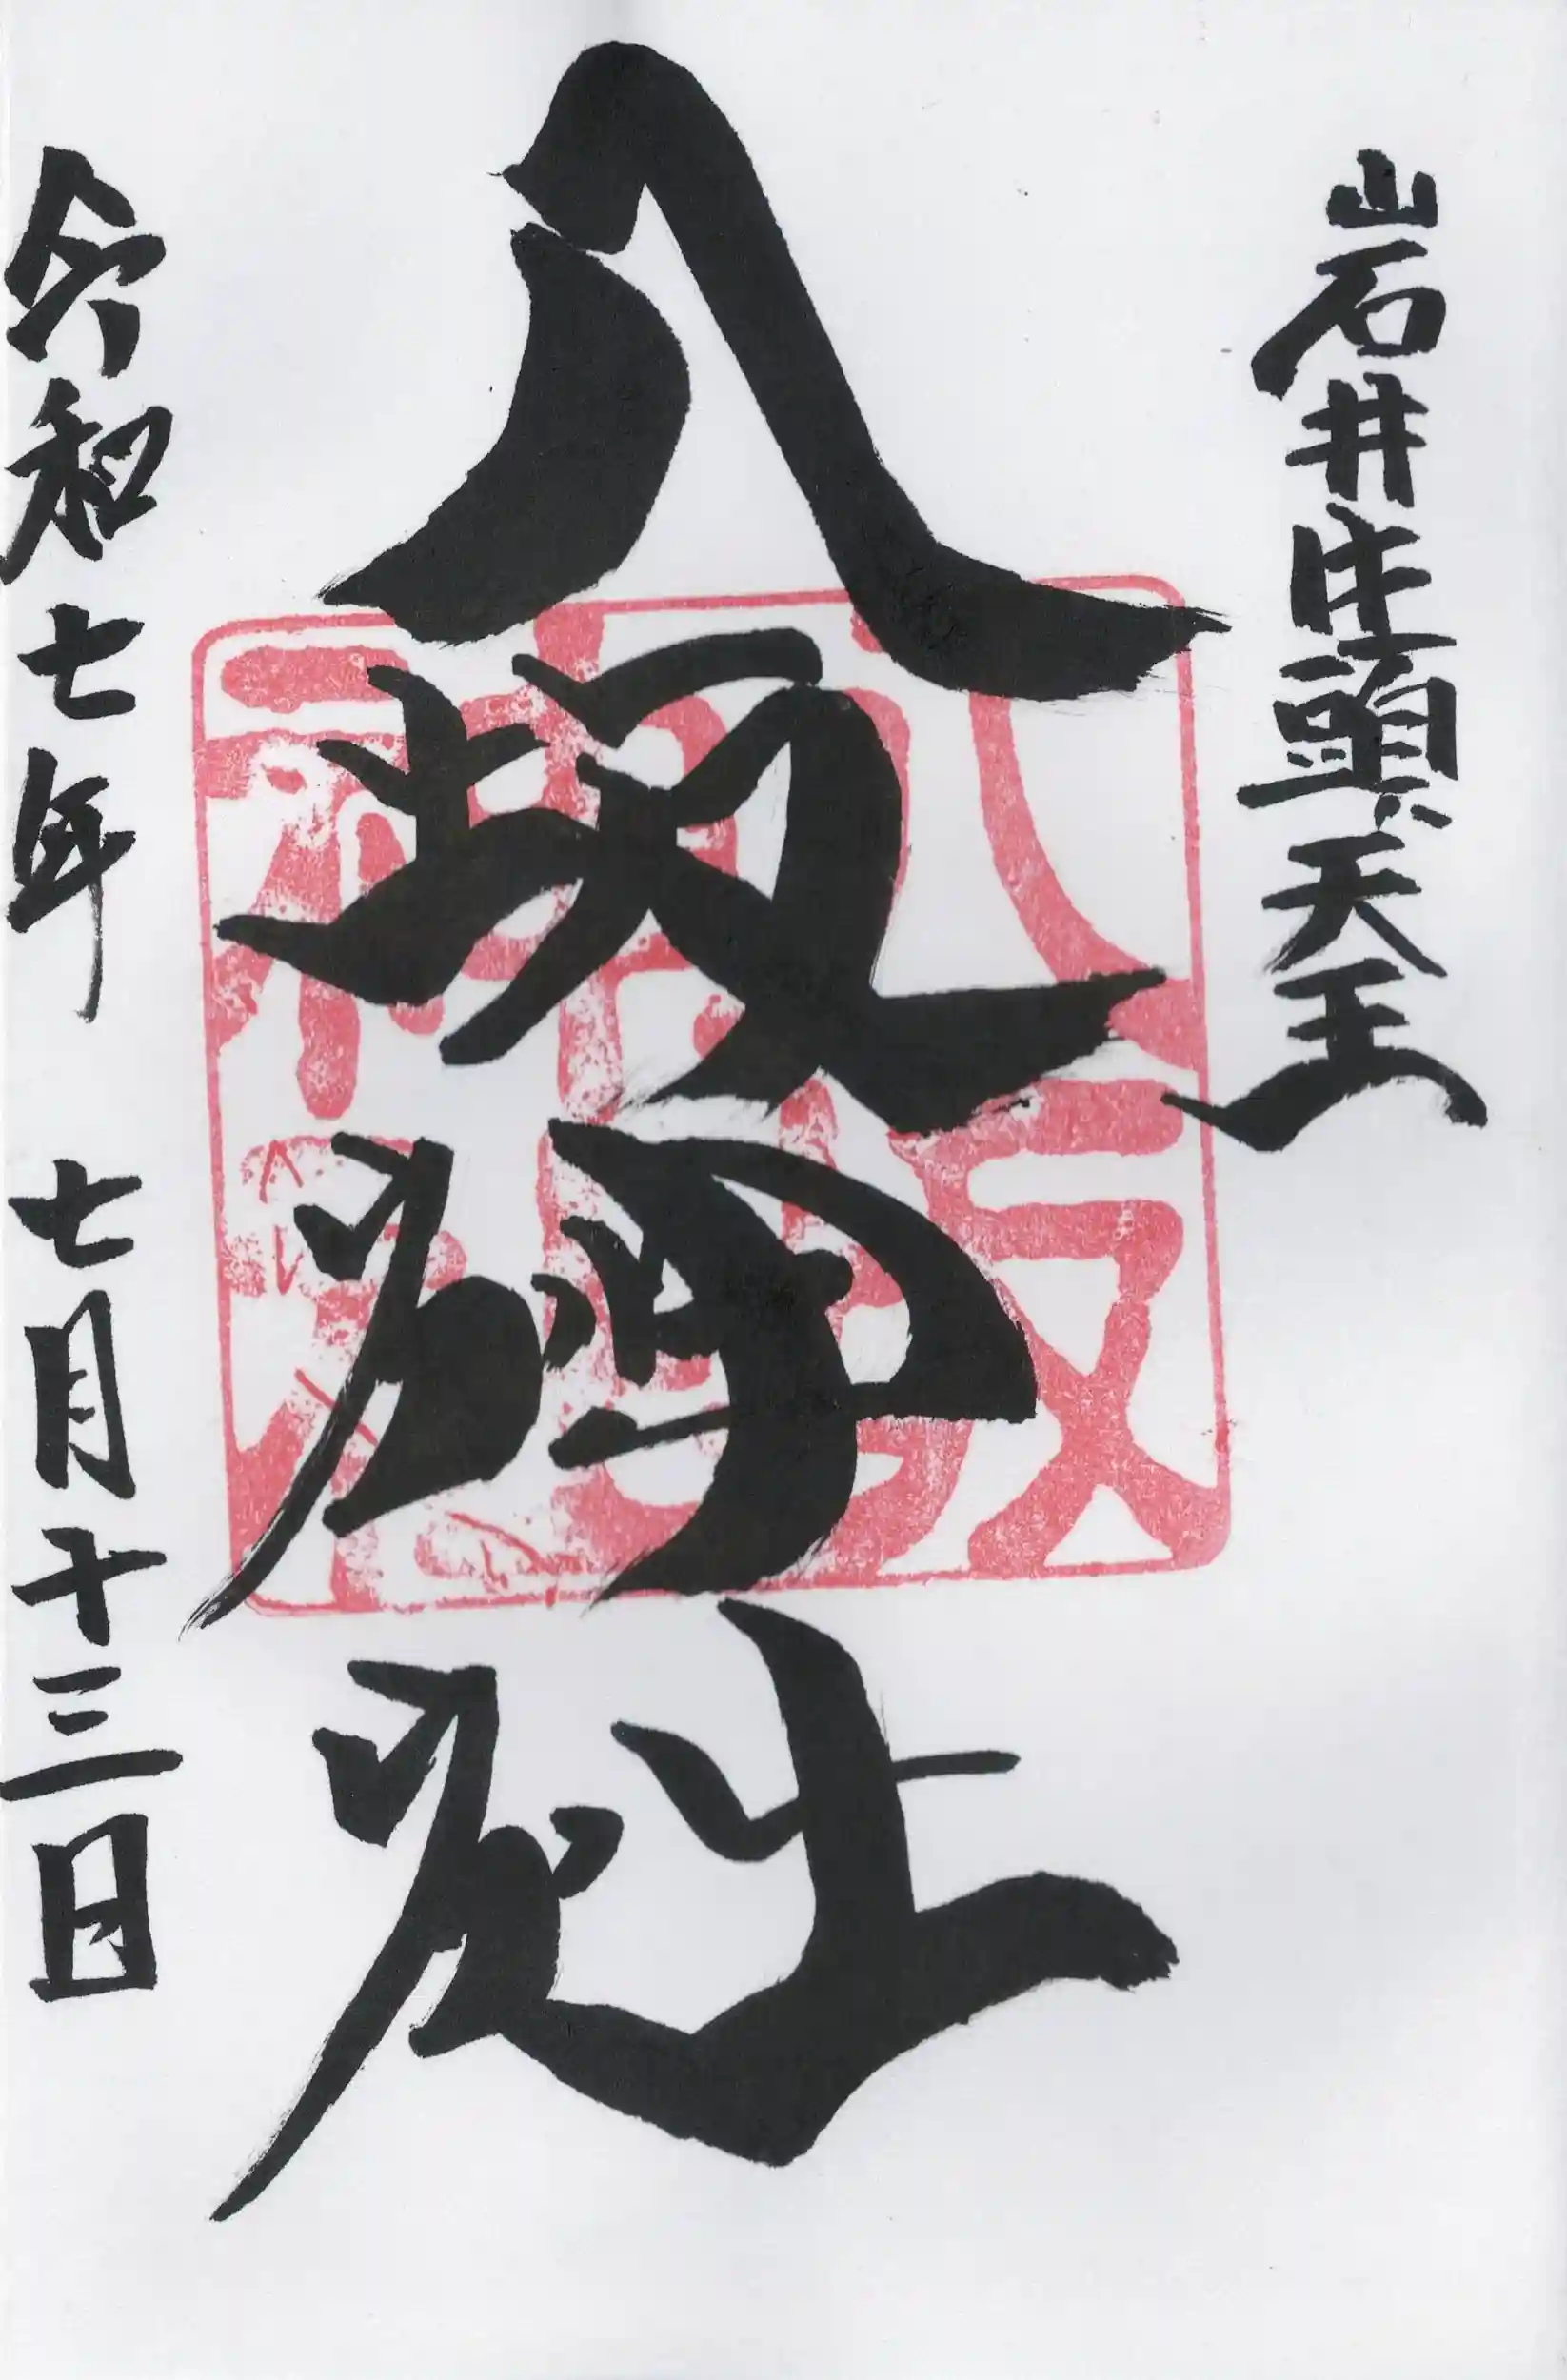 岩石井牛頭天王
八坂神社
八坂神社
令和七年 七月十三日